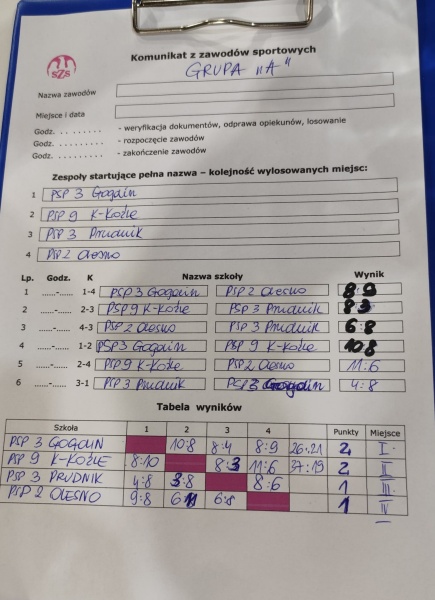 SZS
Komunikat z zawodów sportowych
GRUPA "A"
Nazwa zawodów
Miejsce i data
Godz. . . . . . . . . . - weryfikacja dokumentów, odprawa opiekunów, losowanie
Godz. . . . . . . . . . - rozpoczęcie zawodów
Godz. . . . . . . . . . - zakończenie zawodów
Zespoły startujące pełna nazwa – kolejność wylosowanych miejsc:
1 PSP 3 Gogolin
2 PSP 9 K-Koźle
3 PSP 3 Prudnik
4 PSP 2 Olesno
Lp. Godz. K Nazwa szkoły Wynik
1 ......-...... 1-4 PSP 3 Gogolin PSP 2 Olesno 8:9
2 ......-...... 2-3 PSP 9 K-Koźle PSP 3 Prudnik 8:3
3 ......-...... 4-3 PSP 2 Olesno PSP 3 Prudnik 6:8
4 ......-...... 1-2 PSP 3 Gogolin PSP 9 K-Koźle 10:8
5 ......-...... 2-4 PSP 9 K-Koźle PSP 2 Olesno 11:6
6 ......-...... 3-1 PSP 3 Prudnik PSP 3 Gogolin 4:8
Tabela wyników
Szkoła 1 2 3 4 Punkty Miejsce
PSP 3 GOGOLIN 10:8 8:4 8:9 26:21 2 I
PSP 9 K-KOŹLE 8:10 8:3 11:6 27:19 2 II
PSP 3 PRUDNIK 4:8 3:8 8:6 1 III
PSP 2 OLESNO 9:8 6:11 6:8 1 IV